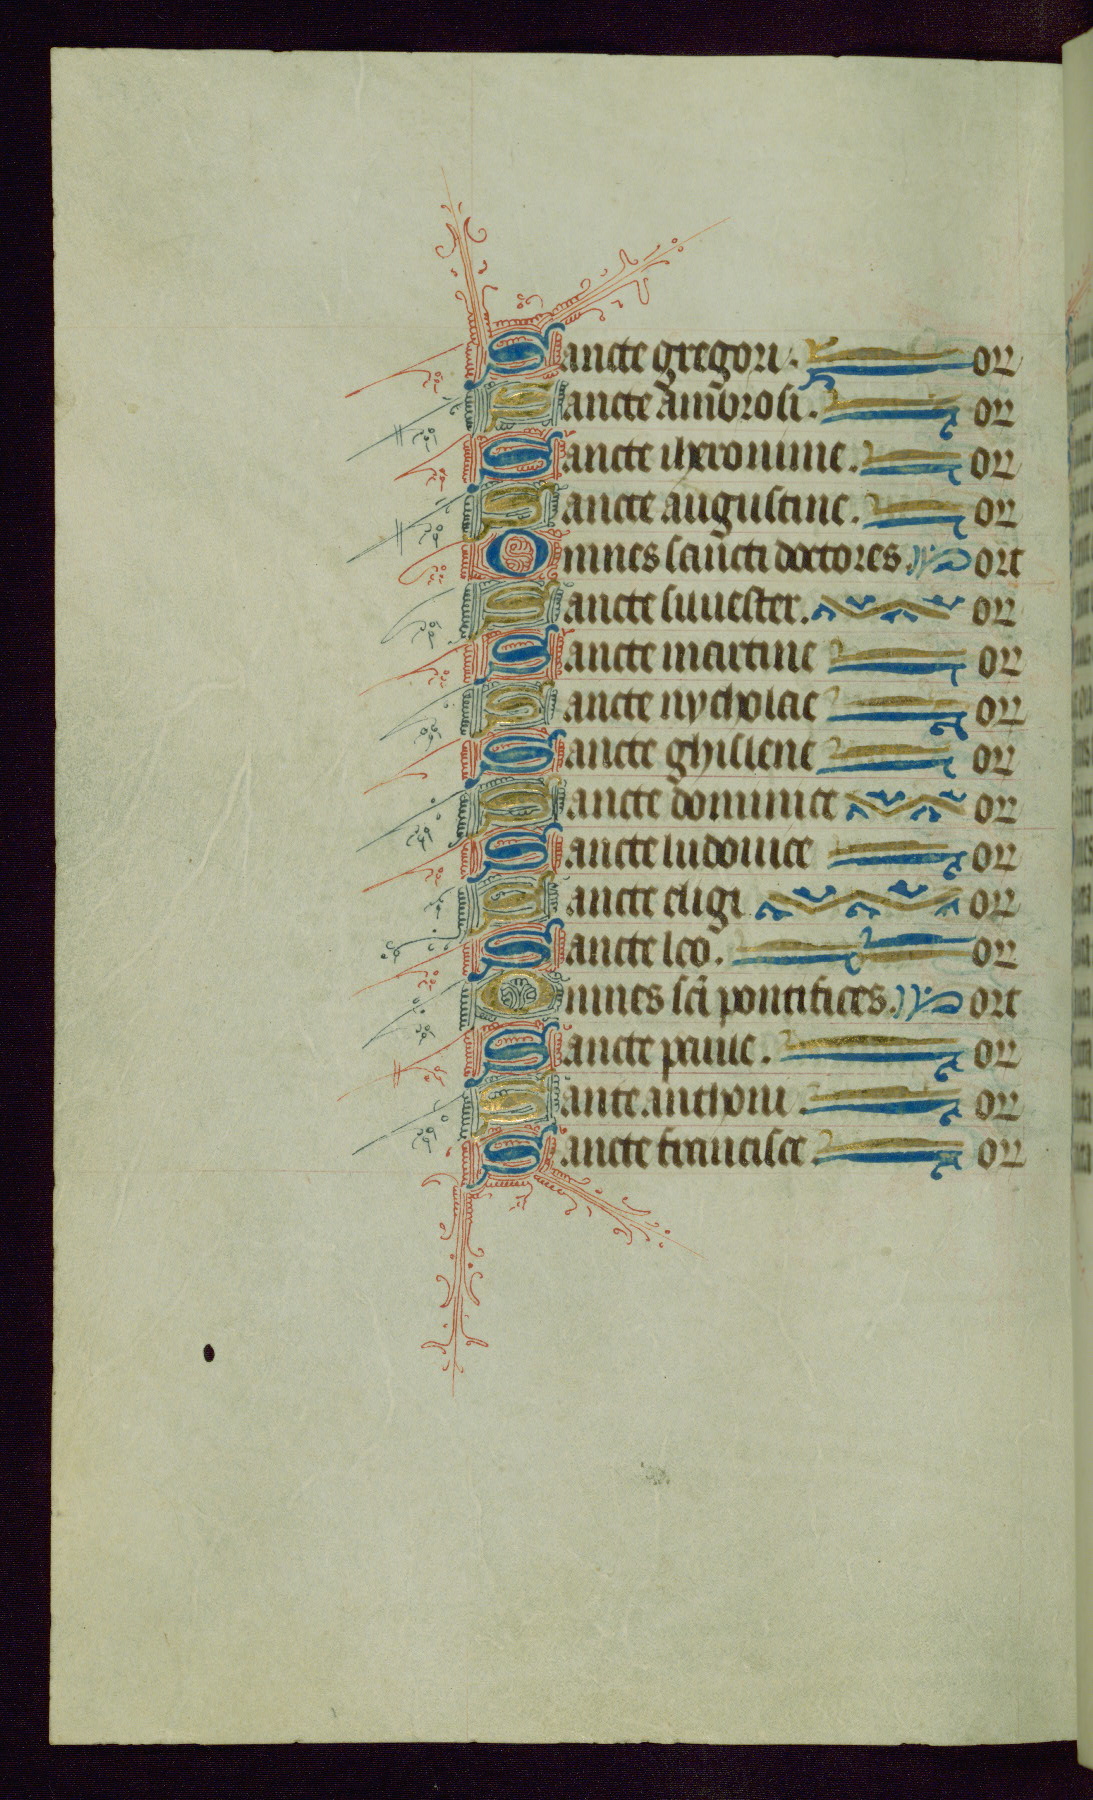 Sancte gregori. or
Sancte ambrosi. or
Sancte iheronime. or
Sancte augustine. or
Omnes sancti doctores. ort
Sancte siluester. or
Sancte martine or
Sancte nycholae or
Sancte ghislene or
Sancte dominice or
Sancte ludouice or
Sancte eligi or
Sancte leo. or
Omnes sc̄i pontifices. ort
Sancte paule. or
Sante anthoni. or
Sancte francisce. or